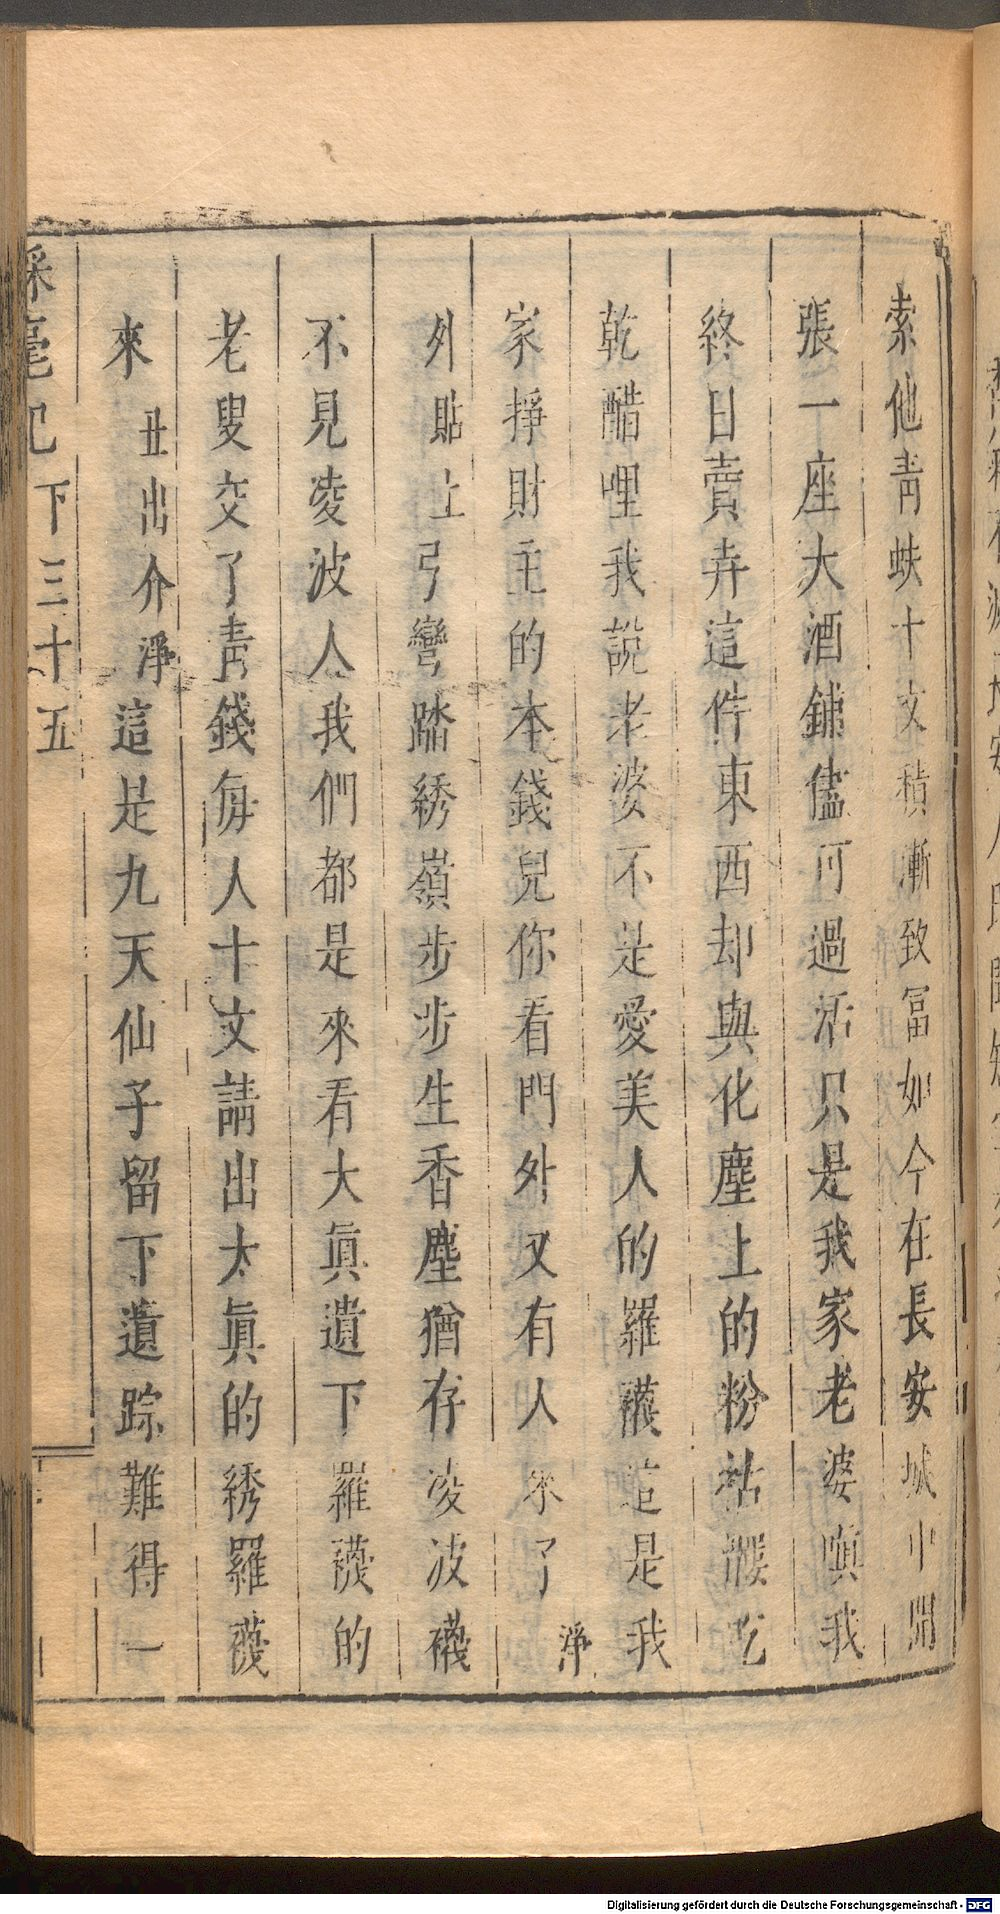 索他青蚨十文積漸致冨如今在長安城中開
張一座大酒鋪儘可過活只是我家老婆嗔我
終日賣弄這件東西却與化塵上的粉袺髒吃
乾醋哩我說老婆不是愛美人的羅襪這是我
家掙財主的本錢兒你看門外又有人來了淨
外貼上弓彎踏綉嶺步步生香塵猶存凌波襪
不見凌波人我們都是來看大眞遺下羅襪的
老叟交了青錢每人十文請出太眞的綉羅襪
來丑出介淨這是九天仙子留下遺踪難得一
綵毫記 下三十五
Digitalisierung gefördert durch die Deutsche Forschungsgemeinschaft - DFG